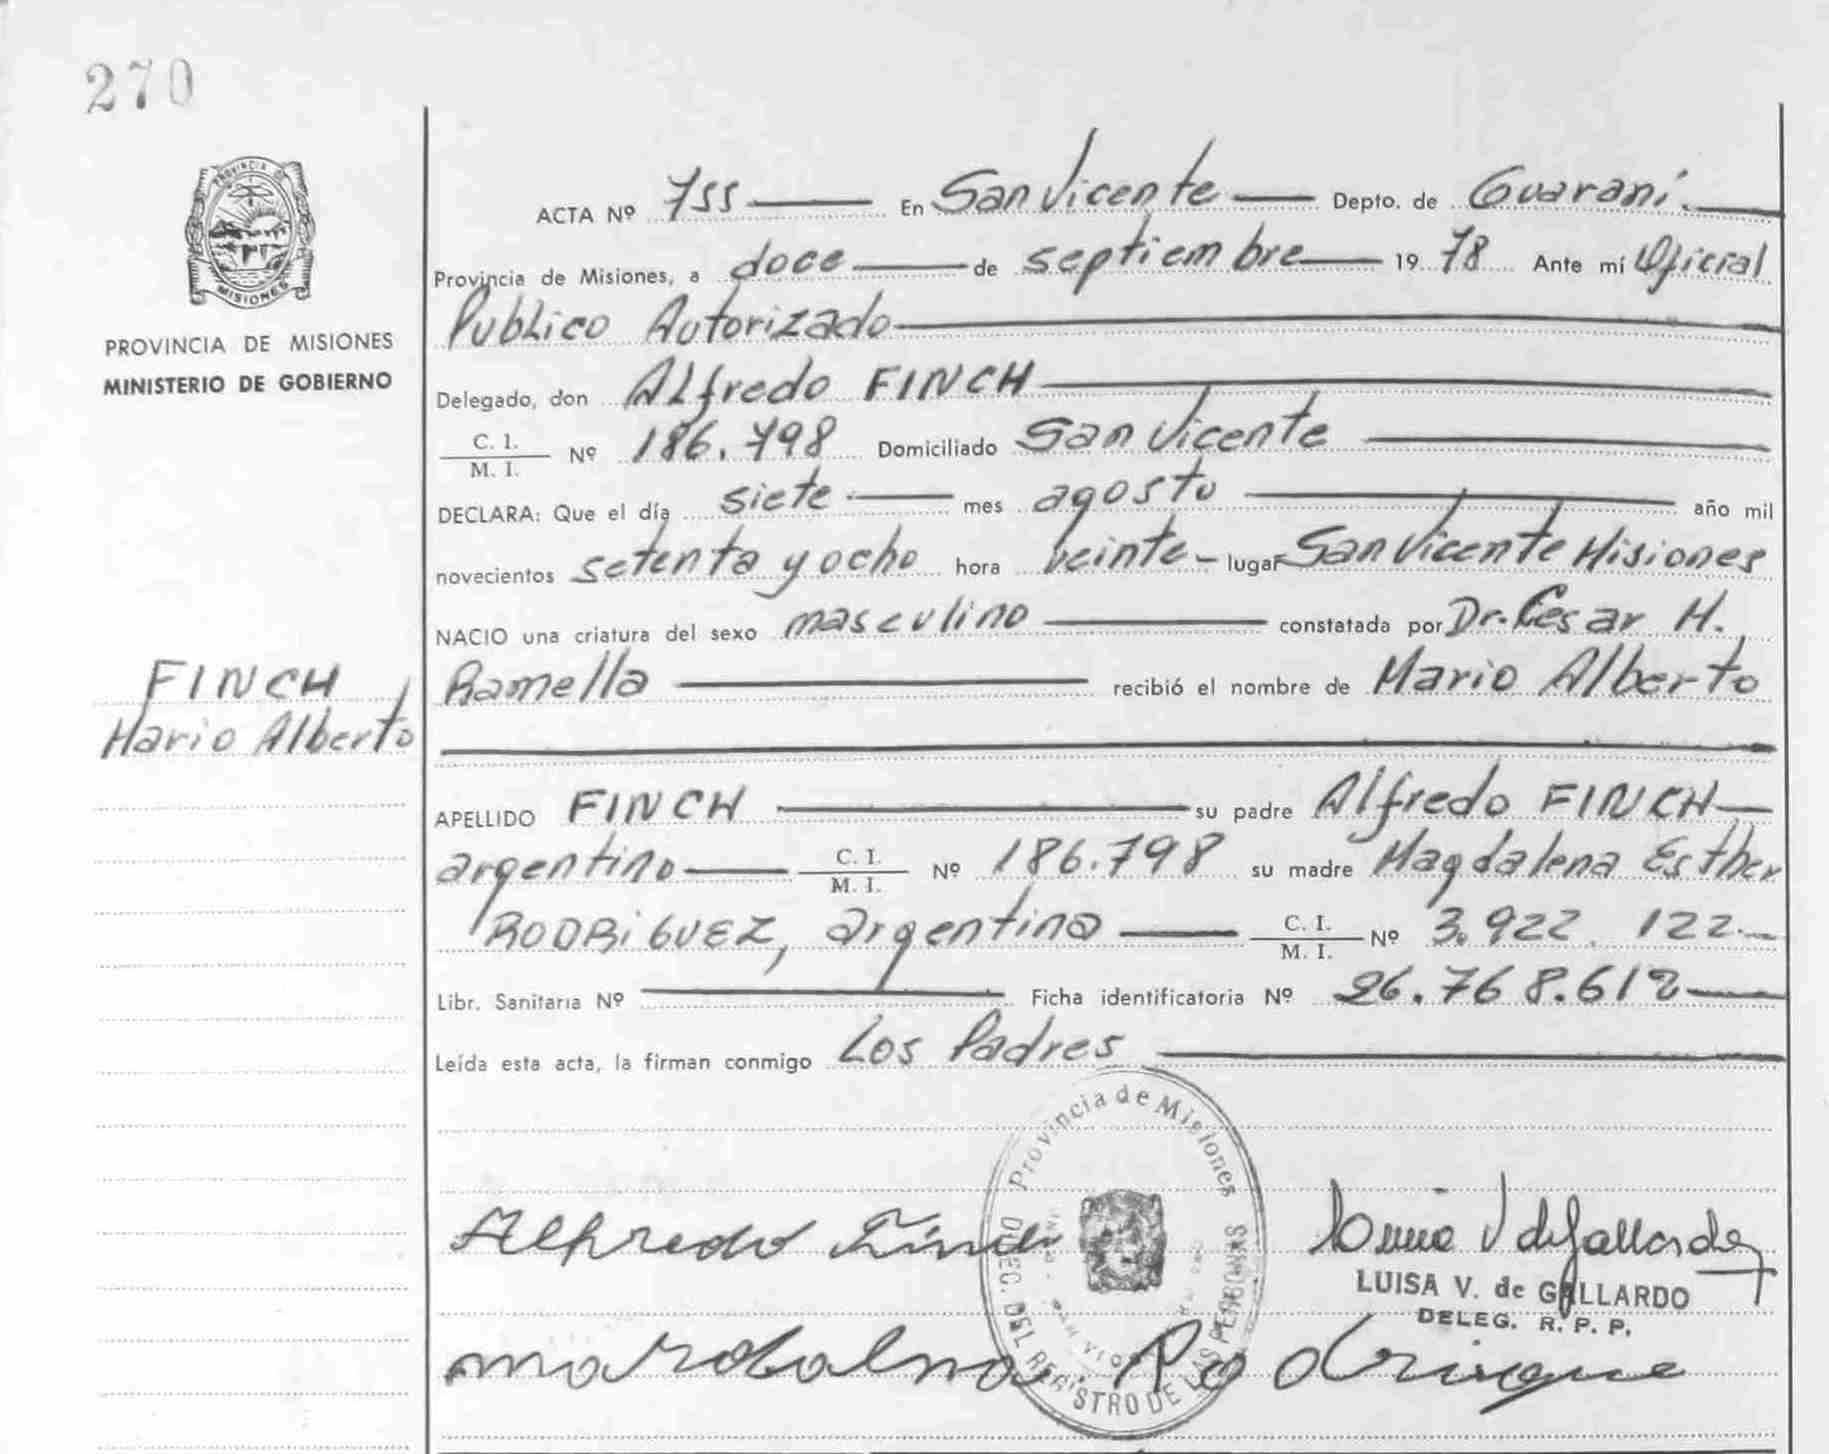 270
PROVINCIA
MISIONES
PROVINCIA DE MISIONES
MINISTERIO DE GOBIERNO
ACTA Nº 755 En San Vicente Depto. de Guaraní.
Provincia de Misiones, a doce de septiembre 19 78 Ante mí Oficial
Publico Autorizado
Delegado, don Alfredo FINCH
C. I. / M. I. Nº 186.798 Domiciliado San Vicente
DECLARA: Que el día siete mes agosto año mil
novecientos setenta y ocho hora veinte lugar San Vicente Misiones
NACIO una criatura del sexo masculino constatada por Dr. Cesar H.
Ramella recibió el nombre de Mario Alberto
FINCH
Mario Alberto
APELLIDO FINCH su padre Alfredo FINCH
argentino C. I. / M. I. Nº 186.798 su madre Magdalena Esther
RODRIGUEZ, argentina C. I. / M. I. Nº 3.922.122.
Libr. Sanitaria Nº Ficha identificatoria Nº 26.768.612
Leída esta acta, la firman conmigo Los Padres
Provincia de Misiones
DIREC. DEL REGISTRO DE LAS PERSONAS
Alfredo Finch
LUISA V. de GALLARDO
DELEG. R. P. P.